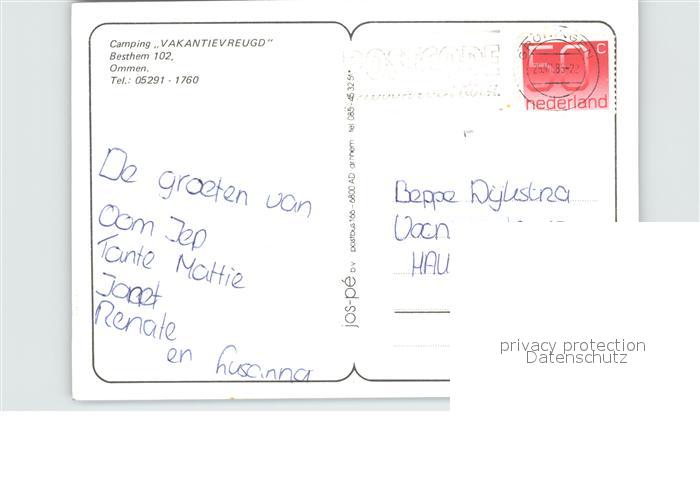 Camping „VAKANTIEVREUGD"
Besthem 102,
Ommen.
Tel.: 05291 - 1760
De groeten van
Oom Jep
Tante Mattie
Janet
Renate
en Susanna
jos-pé b.v. postbus 166 - 6800 AD arnhem tel. 085 - 45 32 51
POSTCODE
50 c
nederland
Beppe Dijkstra
HAU
privacy protection
Datenschutz